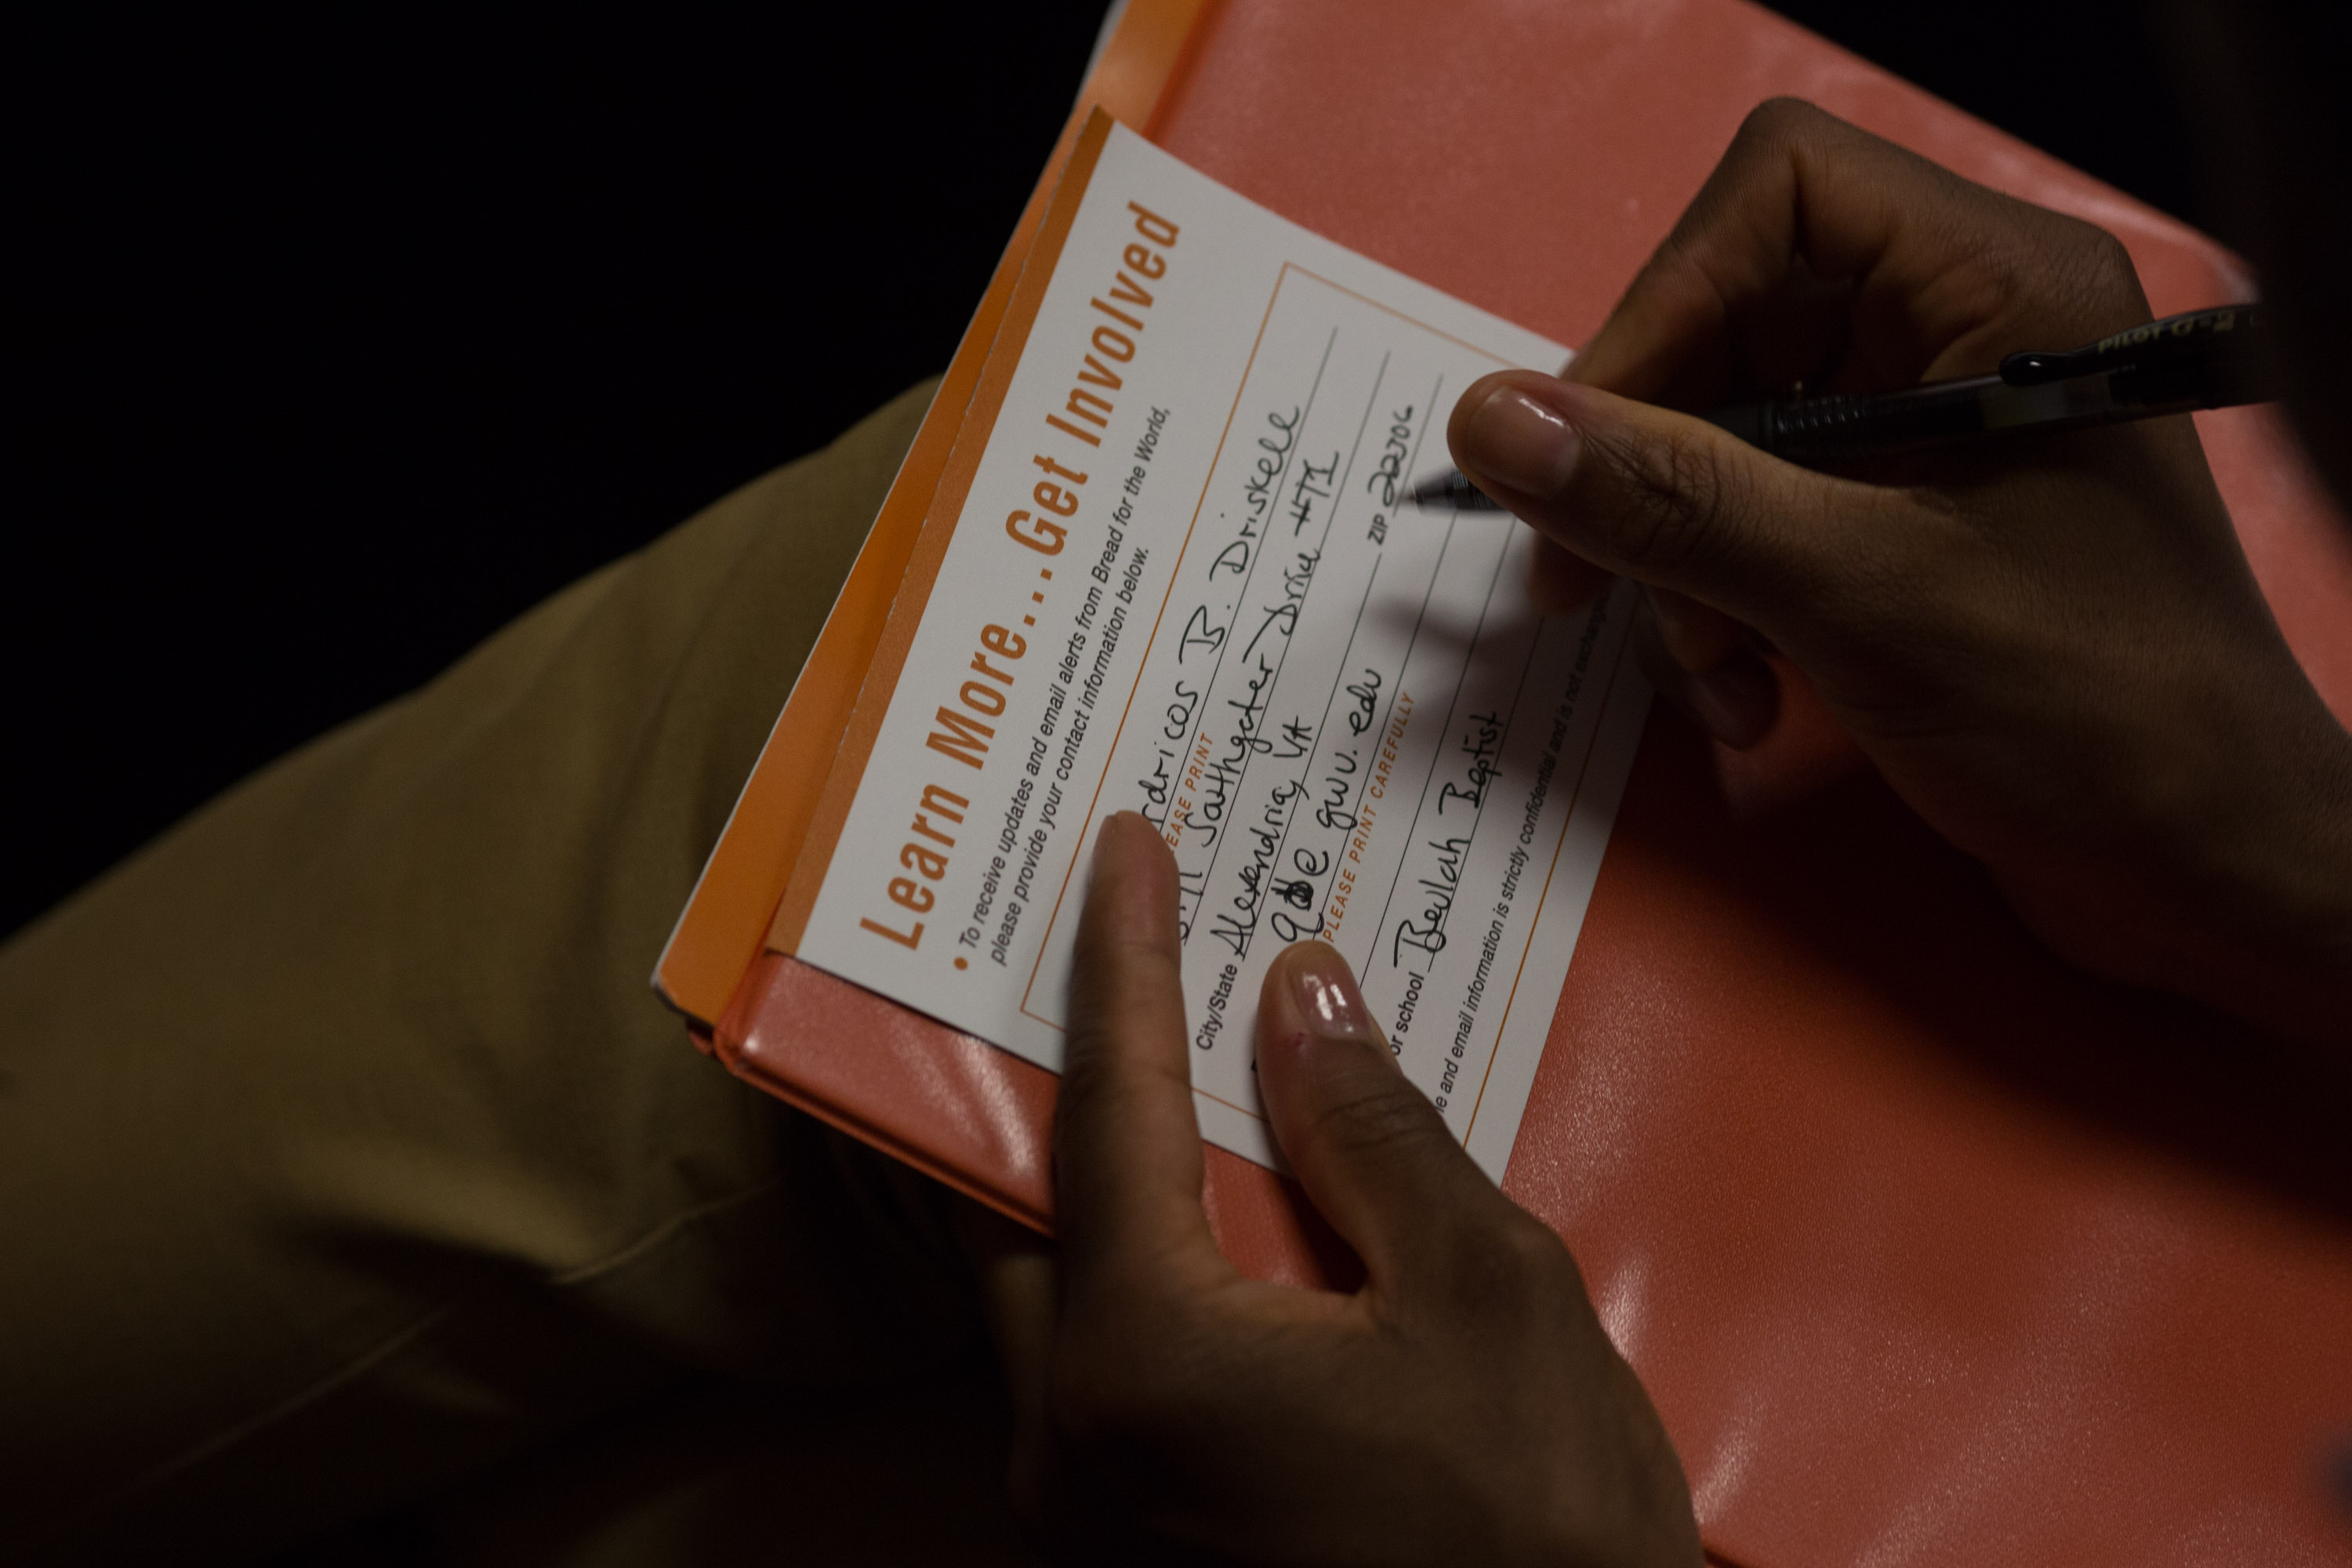 Learn More...Get Involved
• To receive updates and email alerts from Bread for the World,
please provide your contact information below.
dricos B. Driskell
EASE PRINT
Sathgater Drive #T1
City/State Alexandria, VA ZIP 22306
@gwu.edu
PLEASE PRINT CAREFULLY
or school Beulah Baptist
e and email information is strictly confidential and is not exchange
PILOT G-2